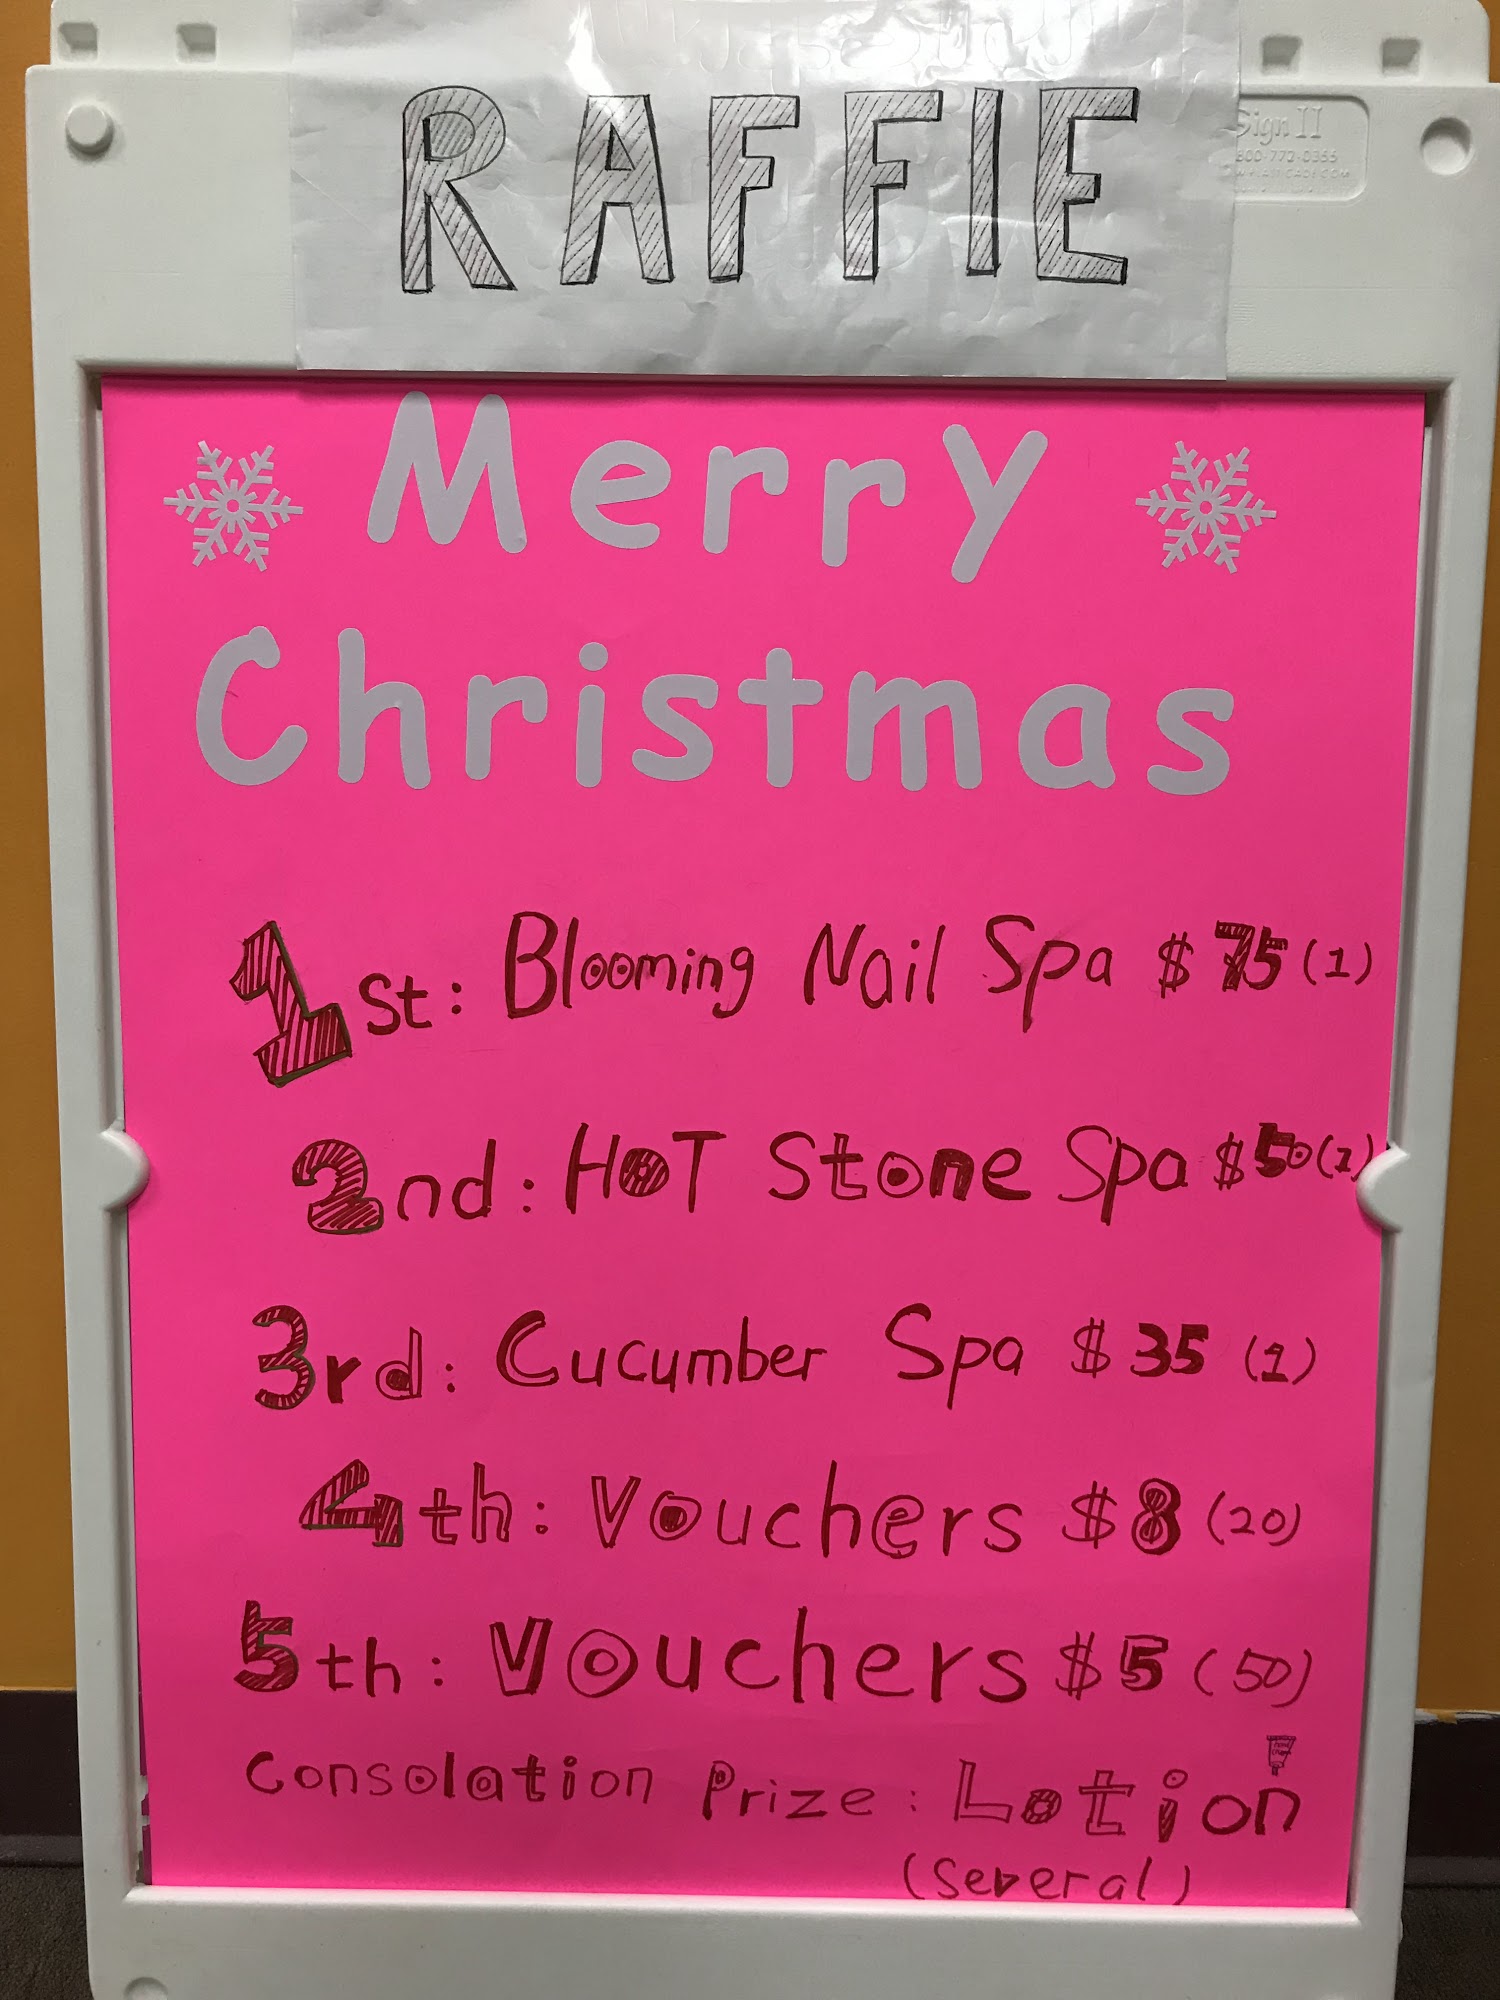 RAFFIE
Sign II
800-772-0355
Merry
Christmas
1st: Blooming Nail Spa $75 (1)
2nd: HOT Stone Spa $50 (1)
3rd: Cucumber Spa $35 (1)
4th: Vouchers $8 (20)
5th: Vouchers $5 (50)
Consolation Prize: Lotion
(Several)